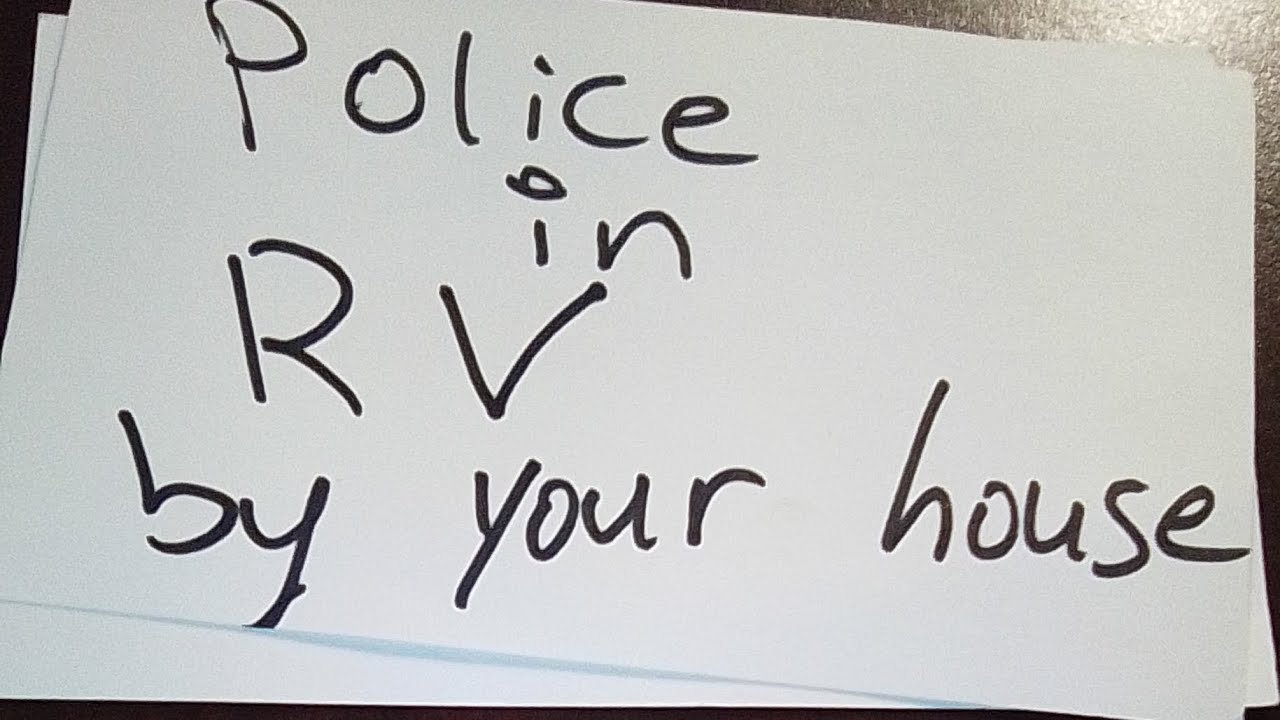 Police
in
RV
by your house